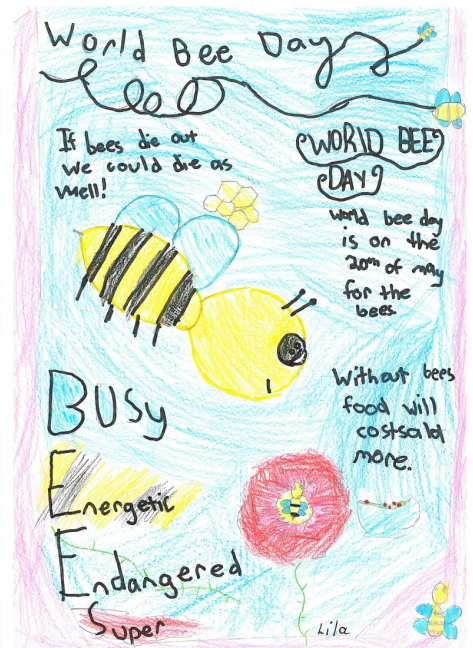 World Bee Day
If bees die out
we could die as
well!
WORLD BEE
DAY
world bee day
is on the
20th of may
for the
bees.
Without bees
food will
costsalot
more.
BUSy
Energetic
Endangered
Super
Lila